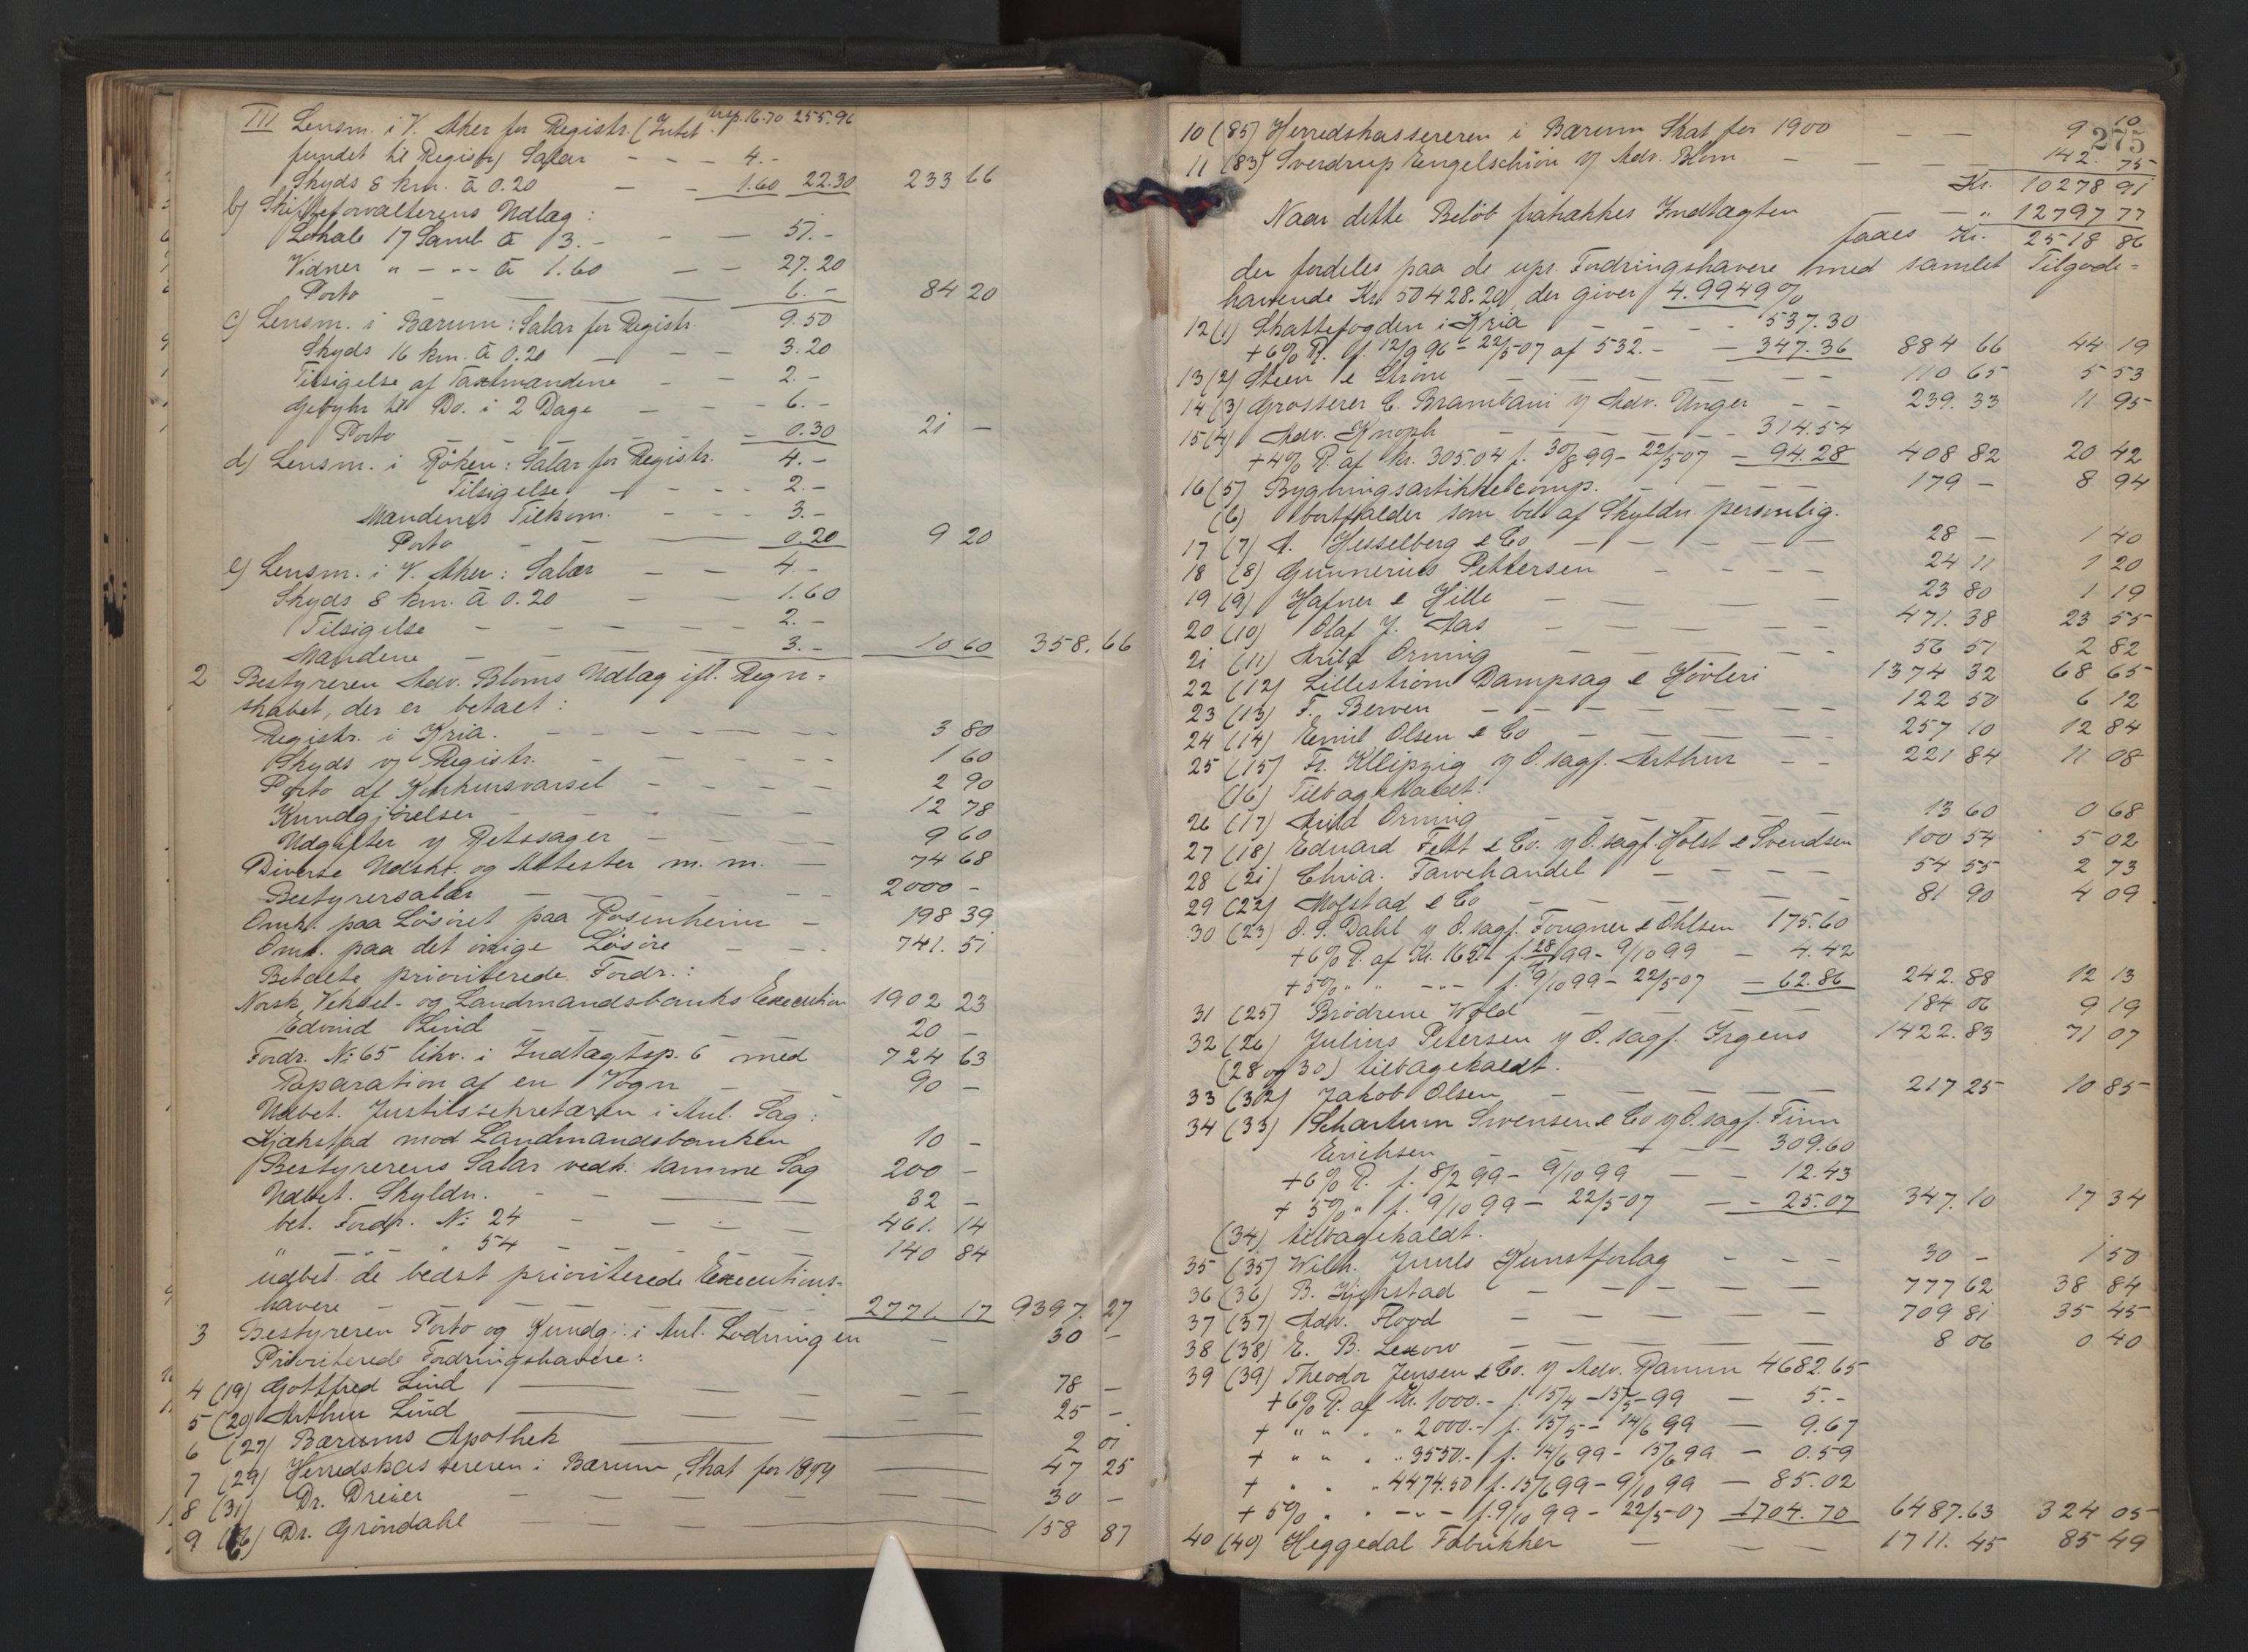 III Lensm. i V. Aker for Registr. (Intet trsp. 16.70 255.96
fundet til Registr) Salær - - - 4.-
Skyds 8 km. à 0.20 - - 1.60 22.30 233 66
b) Skifteforvalterens Udlæg:
Lokale 17 Saml. à 3.- - - 51.-
Vidner " - " - à 1.60 - - 27.20
Porto - - - 6.- 84 20
c) Lensm. i Bærum: Salær for Registr. 9.50
Skyds 16 km. à 0.20 - - - 3.20
Tilsigelse af Taxtmændene - - 2.-
Gebyhr til Do. i 2 Dage - - - 6.-
Porto - - - 0.30 21 -
d) Lensm. i Röken: Salær for Registr. 4.-
Tilsigelse - - - - 2.-
Mændenes Tilkom. - - - 3.-
Porto - - - 0.20 9 20
e) Lensm. i V. Aker: Salær - - 4.-
Skyds 8 km. à 0.20 - - 1.60
Tilsigelse - - - - 2.-
Mændene - - - - 3.- 10 60 358.66
2 Bestyreren Adv. Bloms Udlæg ifl. Regn-
skabet, der er betalt:
Registr. i Kria. - - - - - 3 80
Skyds v Registr. - - - - 1 60
Porto af Konkursvarsel - - - - 2 90
Kundgjørelser - - - - 12 78
Udgifter v Retssager - - - 9 60
Diverse Udskr. og Attester m. m. - 74 68
Bestyrersalær - - - - 2000 -
Omk. paa Løsøret paa Rosenheim - 198 39
Omk. paa det øvrige Løsøre - - 741. 51
Betalte prioriterede Fordr.:
Norsk Veksel- og Landmandsbanks Execution 1902 23
Edvind Lind 20 -
Fordr. No 65 likv. i Indtægtsp. 6 med 724 63
Raparation af en Vogn - - 90 -
Udbet. Justitssekretæren i Anl. Sag:
Kjækstad mod Landmandsbanken 10 -
Bestyrerens Salær vedk. samme Sag 200 -
Udbet. Skyldn. - - - 32 -
bet. Fordr. No 24 - - - - 461. 14
" - " - " 54 - - - - 140 84
udbet. de bedst prioriterede Executions-
havere - - - - 2771. 17 9397. 27
3 Bestyreren Porto og Kundgj. i Anl. Lodningen - 30 -
Prioriterede Fordringshavere:
4 (19) Gottfred Lind - - - - 78 -
5 (20) Arthur Lind - - - - 25 -
6 (27) Bærums Apothek - - 2 01
7 (29) Herredskassereren i Bærum, Skat for 1899 - - 47 25
8 (31) Dr. Dreier - - - - 30 -
9 Dr. Grøndahl - - - - 158 87
10 (85) Herredskassereren i Bærum Skat for 1900 - - 9 10
275
11 (83) Sverdrup Engelschiön v Adv. Blom - - - 142. 75
Kr. 10278 91
Naar dette Beløb fratrækkes Indtægten - - " 12797 77
faaes Kr. 2518 86
der fordeles paa de upr. Fordringshavere med samlet Tilgode-
havende Kr. 50428.20, der giver 4.9949 %
12 (1) Skattefogden i Kria - - - 537.30
+ 6% R. f. 12/9 96 - 22/5 07 af 532.- - 347.36 884 66 44 19
13 (2) Steen & Strøm - - - - 110 65 5 53
14 (3) Grosserer C. Brambani v Adv. Unger - - 239. 33 11 95
15 (4) Adv. Knoph - - - - 314.54
+ 4% R. af Kr. 305.04 f. 30/8 99 - 22/5 07 - 94.28 408 82 20 42
16 (5) Bygningsartikkelcomp. - - - - 179 - 8 94
(6) bortfalder som bet. af Skyldn. personlig.
17 (7) A. Hesselberg & Co - - - - 28 - 1 40
18 (8) Gunnerius Pettersen - - - - 24 11 1 20
19 (9) Hafner & Hille - - - - 23 80 1 19
20 (10) Olaf J. Aas - - - - 471. 38 23 55
21 (11) Arild Orning - - - - 56 51 2 82
22 (12) Lillestrøm Dampsag & Høvleri 1374 32 68 65
23 (13) F. Berven - - - - 122 50 6 12
24 (14) Emil Olsen & Co - - - - 257 10 12 84
25 (15) Fr. Kleipzig v O. sagf. Arthur - - 221 84 11 08
(16) Tilbagekaldt.
26 (17) Arild Orning - - - - 13 60 0 68
27 (18) Eduard Fett & Co. v O. sagf. Holst & Svendsen 100 54 5 02
28 (21) Chria. Farvehandel - - - - 54 55 2 73
29 (22) Molstad & Co - - - - 81 90 4 09
30 (23) O. S. Dahl v O. sagf. Fougner & Ohlsen 175.60
+ 6% R. af Kr. 165. f. 28/4 99 - 9/10 99 - 4.42
+ 5% " " - " - f. 9/10 99 - 22/5 07 - 62.86 242. 88 12 13
31 (25) Brödrene Wold - - - - 184 06 9 19
32 (26) Julius Petersen v O. sagf. Irgens 1422. 83 71 07
(28 og 30) tilbagekaldt.
33 (32) Jakob Olsen - - - - 217 25 10 85
34 (33) Schartum Svensen & Co v O. sagf. Finn
Erichsen - - - - 309.60
+ 6% R. f. 8/2 99 - 9/10 99 - - 12.43
+ 5% " f. 9/10 99 - 22/5 07 - - 25.07 347. 10 17 34
(34) tilbagekaldt.
35 (35) Wilh. Juuls Kunstforlag - - - 30 - 1 50
36 (36) B. Kjekstad - - - - 777 62 38 84
37 (37) Adv. Flood - - - - 709 81 35 45
38 (38) E. B. Lexow - - - - 8 06 0 40
39 (39) Theodor Jensen & Co. v Adv. Ramm 4682.65
+ 6% R. af Kr. 1000.- f. 15/4 - 15/5 - 99 - 5.-
+ " " " " 2000.- f. 15/5 - 14/6 99 - 9.67
+ " " " " 3550.- f. 14/6 99 - 15/6 99 - 0.59
+ " " " 4474.50 f. 15/6 99 - 9/10 99 - 85.02
+ 5% " " - " - f. 9/10 99 - 22/5 07 1704. 70 6487.63 324 05
40 (40) Heggedal Fabrikker - - - 1711. 45 85 49